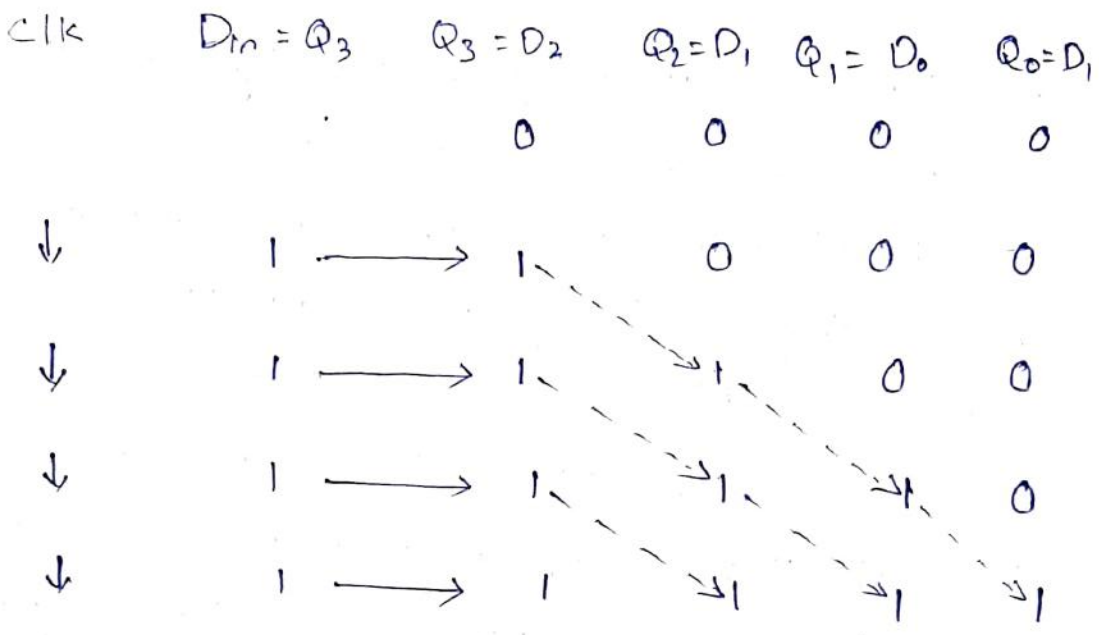 Clk Din = Q3 Q3 = D2 Q2 = D1 Q1 = D0 Q0 = D1
0 0 0 0
↓ 1 → 1 0 0 0
↓ 1 → 1 1 0 0
↓ 1 → 1 1 1 0
↓ 1 → 1 1 1 1